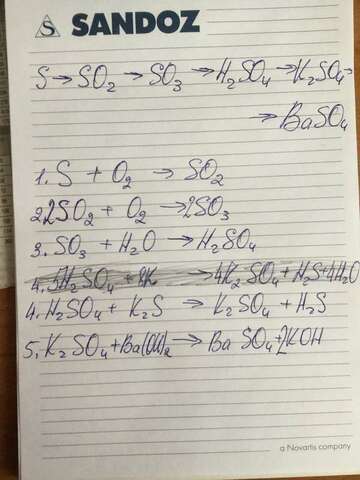 SANDOZ
S → SO₂ → SO₃ → H₂SO₄ → K₂SO₄ →
→ BaSO₄
1. S + O₂ → SO₂
2. 2SO₂ + O₂ → 2SO₃
3. SO₃ + H₂O → H₂SO₄
4. 5H₂SO₄ + 8K → 4K₂SO₄ + H₂S + 4H₂O
4. H₂SO₄ + K₂S → K₂SO₄ + H₂S
5. K₂SO₄ + Ba(OH)₂ → BaSO₄ + 2KOH
a Novartis company